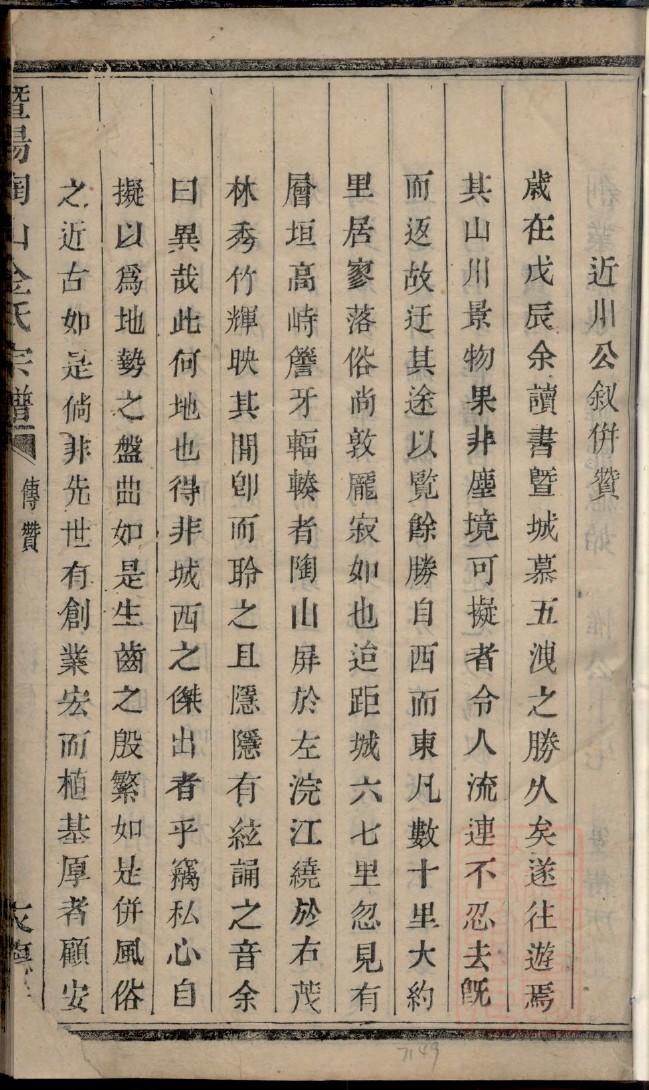 近川公叙併贊
歲在戊辰余讀書曁城慕五洩之勝久矣遂往遊焉
其山川景物果非塵境可擬者令人流連不忍去旣
而返故迂其途以覧餘勝自西而東凡數十里大約
里居寥落俗尚敦龎寂如也迨距城六七里忽見有
層垣高峙簷牙輻輳者陶山屏於左浣江繞於右茂
林秀竹輝映其間卽而聆之且隱隱有絃誦之音余
曰異哉此何地也得非城西之傑出者乎竊私心自
擬以爲地勢之盤曲如是生齒之殷繁如是併風俗
之近古如是倘非先世有創業宏而植基厚者顧安
暨陽陶山金氏宗譜
傳贊
7149